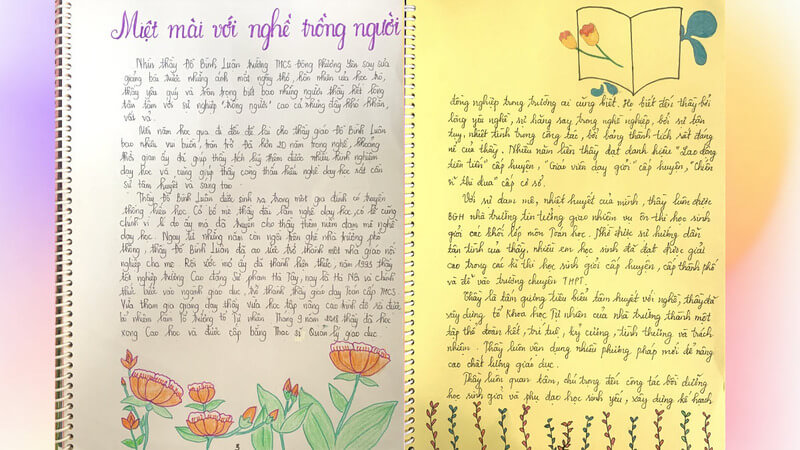 Miệt mài với nghề trồng người
Nhìn thầy Đỗ Bình Luận trường THCS Đông Phương Yên say sưa
giảng bài trước những ánh mắt ngây thơ hồn nhiên của học trò,
thầy yêu quý và trân trọng biết bao những người thầy hết lòng
tận tâm với sự nghiệp "trồng người" cao cả nhưng đầy khó khăn,
vất vả.
Mỗi năm học qua đi đều để lại cho thầy giáo Đỗ Bình Luận
bao nhiêu vui buồn, trăn trở. Đã hơn 20 năm trong nghề, khoảng
thời gian ấy đã giúp thầy tích lũy thêm được nhiều kinh nghiệm
dạy học và cũng giúp thầy càng thấu hiểu nghề dạy học rất cần
sự tâm huyết và sáng tạo.
Thầy Đỗ Bình Luận được sinh ra trong một gia đình có truyền
thống hiếu học. Có bố mẹ thầy đều làm nghề dạy học, có lẽ cũng
chính vì lí do ấy mà đã truyền cho thầy thêm niềm đam mê nghề
dạy học. Ngay từ những năm còn ngồi trên ghế nhà trường phổ
thông, thầy Đỗ Bình Luận đã ao ước trở thành một nhà giáo nối
nghiệp cha mẹ. Rồi ước mơ ấy đã thành hiện thực, năm 1995 thầy
tốt nghiệp trường Cao đẳng Sư phạm Hà Tây, nay là Hà Nội và chính
thức bước vào ngành giáo dục, trở thành thầy giáo dạy Toán cấp THCS.
Vừa tham gia giảng dạy thầy vừa học lớp nâng cao trình độ và được
bổ nhiệm làm Tổ trưởng tổ Tự nhiên. Tháng 9 năm 2018 thầy đã học
xong Cao học và được cấp bằng Thạc sĩ Quản lý giáo dục.
3
đồng nghiệp trong trường ai cũng biết. Họ biết đến thầy bởi
lòng yêu nghề, sự hăng say trong nghề nghiệp, bởi sự tận
tụy, nhiệt tình trong công tác, bởi bảng thành tích rất đáng
nể của thầy. Nhiều năm liền thầy đạt danh hiệu "Lao động
tiên tiến" cấp huyện, "Giáo viên dạy giỏi" cấp huyện, "Chiến
sĩ thi đua" cấp cơ sở.
Với sự đam mê, nhiệt huyết của mình, thầy luôn được
BGH nhà trường tin tưởng giao nhiệm vụ ôn thi học sinh
giỏi các khối lớp môn Toán học. Nhờ được sự hướng dẫn
tận tình của thầy, nhiều em học sinh đã đạt được giải
cao trong các kì thi học sinh giỏi cấp huyện, cấp thành phố
và đỗ vào trường chuyên THPT.
Thầy là tấm gương tiêu biểu tâm huyết với nghề, thầy đã
xây dựng tổ Khoa học Tự nhiên của nhà trường thành một
tập thể đoàn kết, trí tuệ, kỷ cương, tình thương và trách
nhiệm. Thầy luôn vận dụng nhiều phương pháp mới để nâng
cao chất lượng giáo dục.
Thầy luôn quan tâm, chú trọng đến công tác bồi dưỡng
học sinh giỏi và phụ đạo học sinh yếu, xây dựng kế hoạch